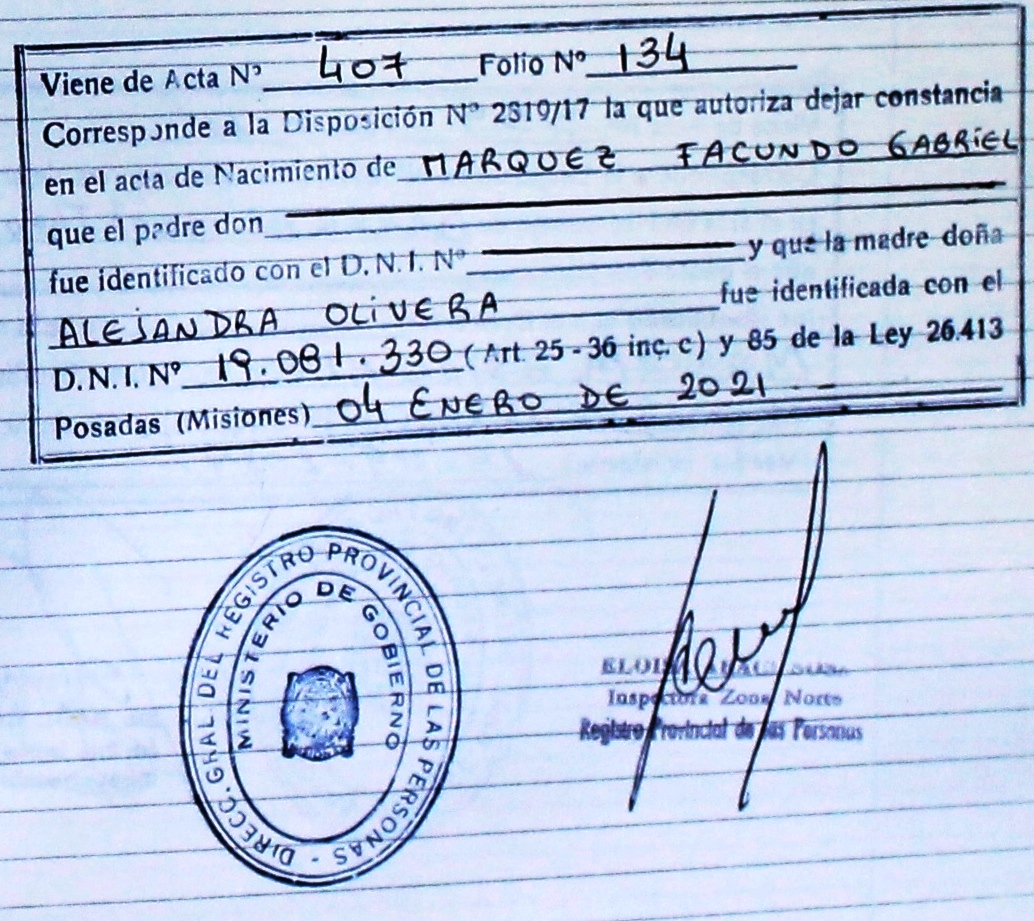 Viene de Acta Nº 407 Folio Nº 134
Corresponde a la Disposición Nº 2819/17 la que autoriza dejar constancia
en el acta de Nacimiento de MARQUEZ FACUNDO GABRIEL
que el padre don
fue identificado con el D. N. I. Nº y que la madre doña
ALEJANDRA OLIVERA fue identificada con el
D. N. I. Nº 19.081.330 (Art. 25 - 36 inc. c) y 85 de la Ley 26.413
Posadas (Misiones) 04 ENERO DE 2021 . -
DIRECC. GRAL. DEL REGISTRO PROVINCIAL DE LAS PERSONAS -
MINISTERIO DE GOBIERNO
Inspectora Zona Norte
Registro Provincial de las Personas